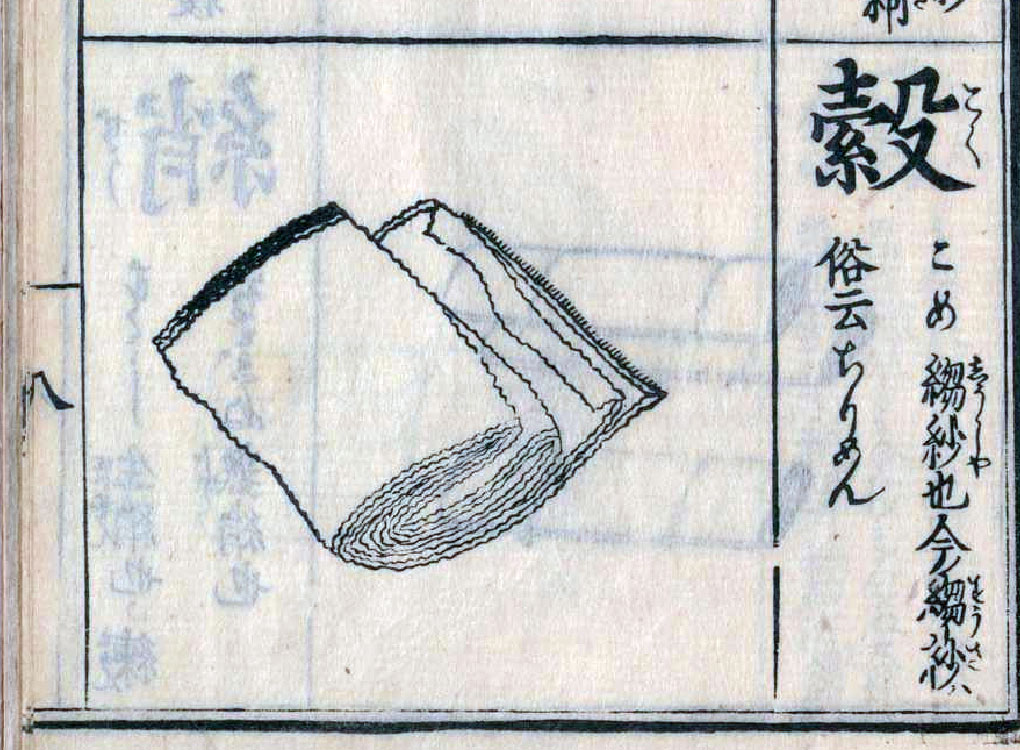 縠
こく
こめ 縐紗也今縐紗ハ
しうしや
俗云ちりめん
八